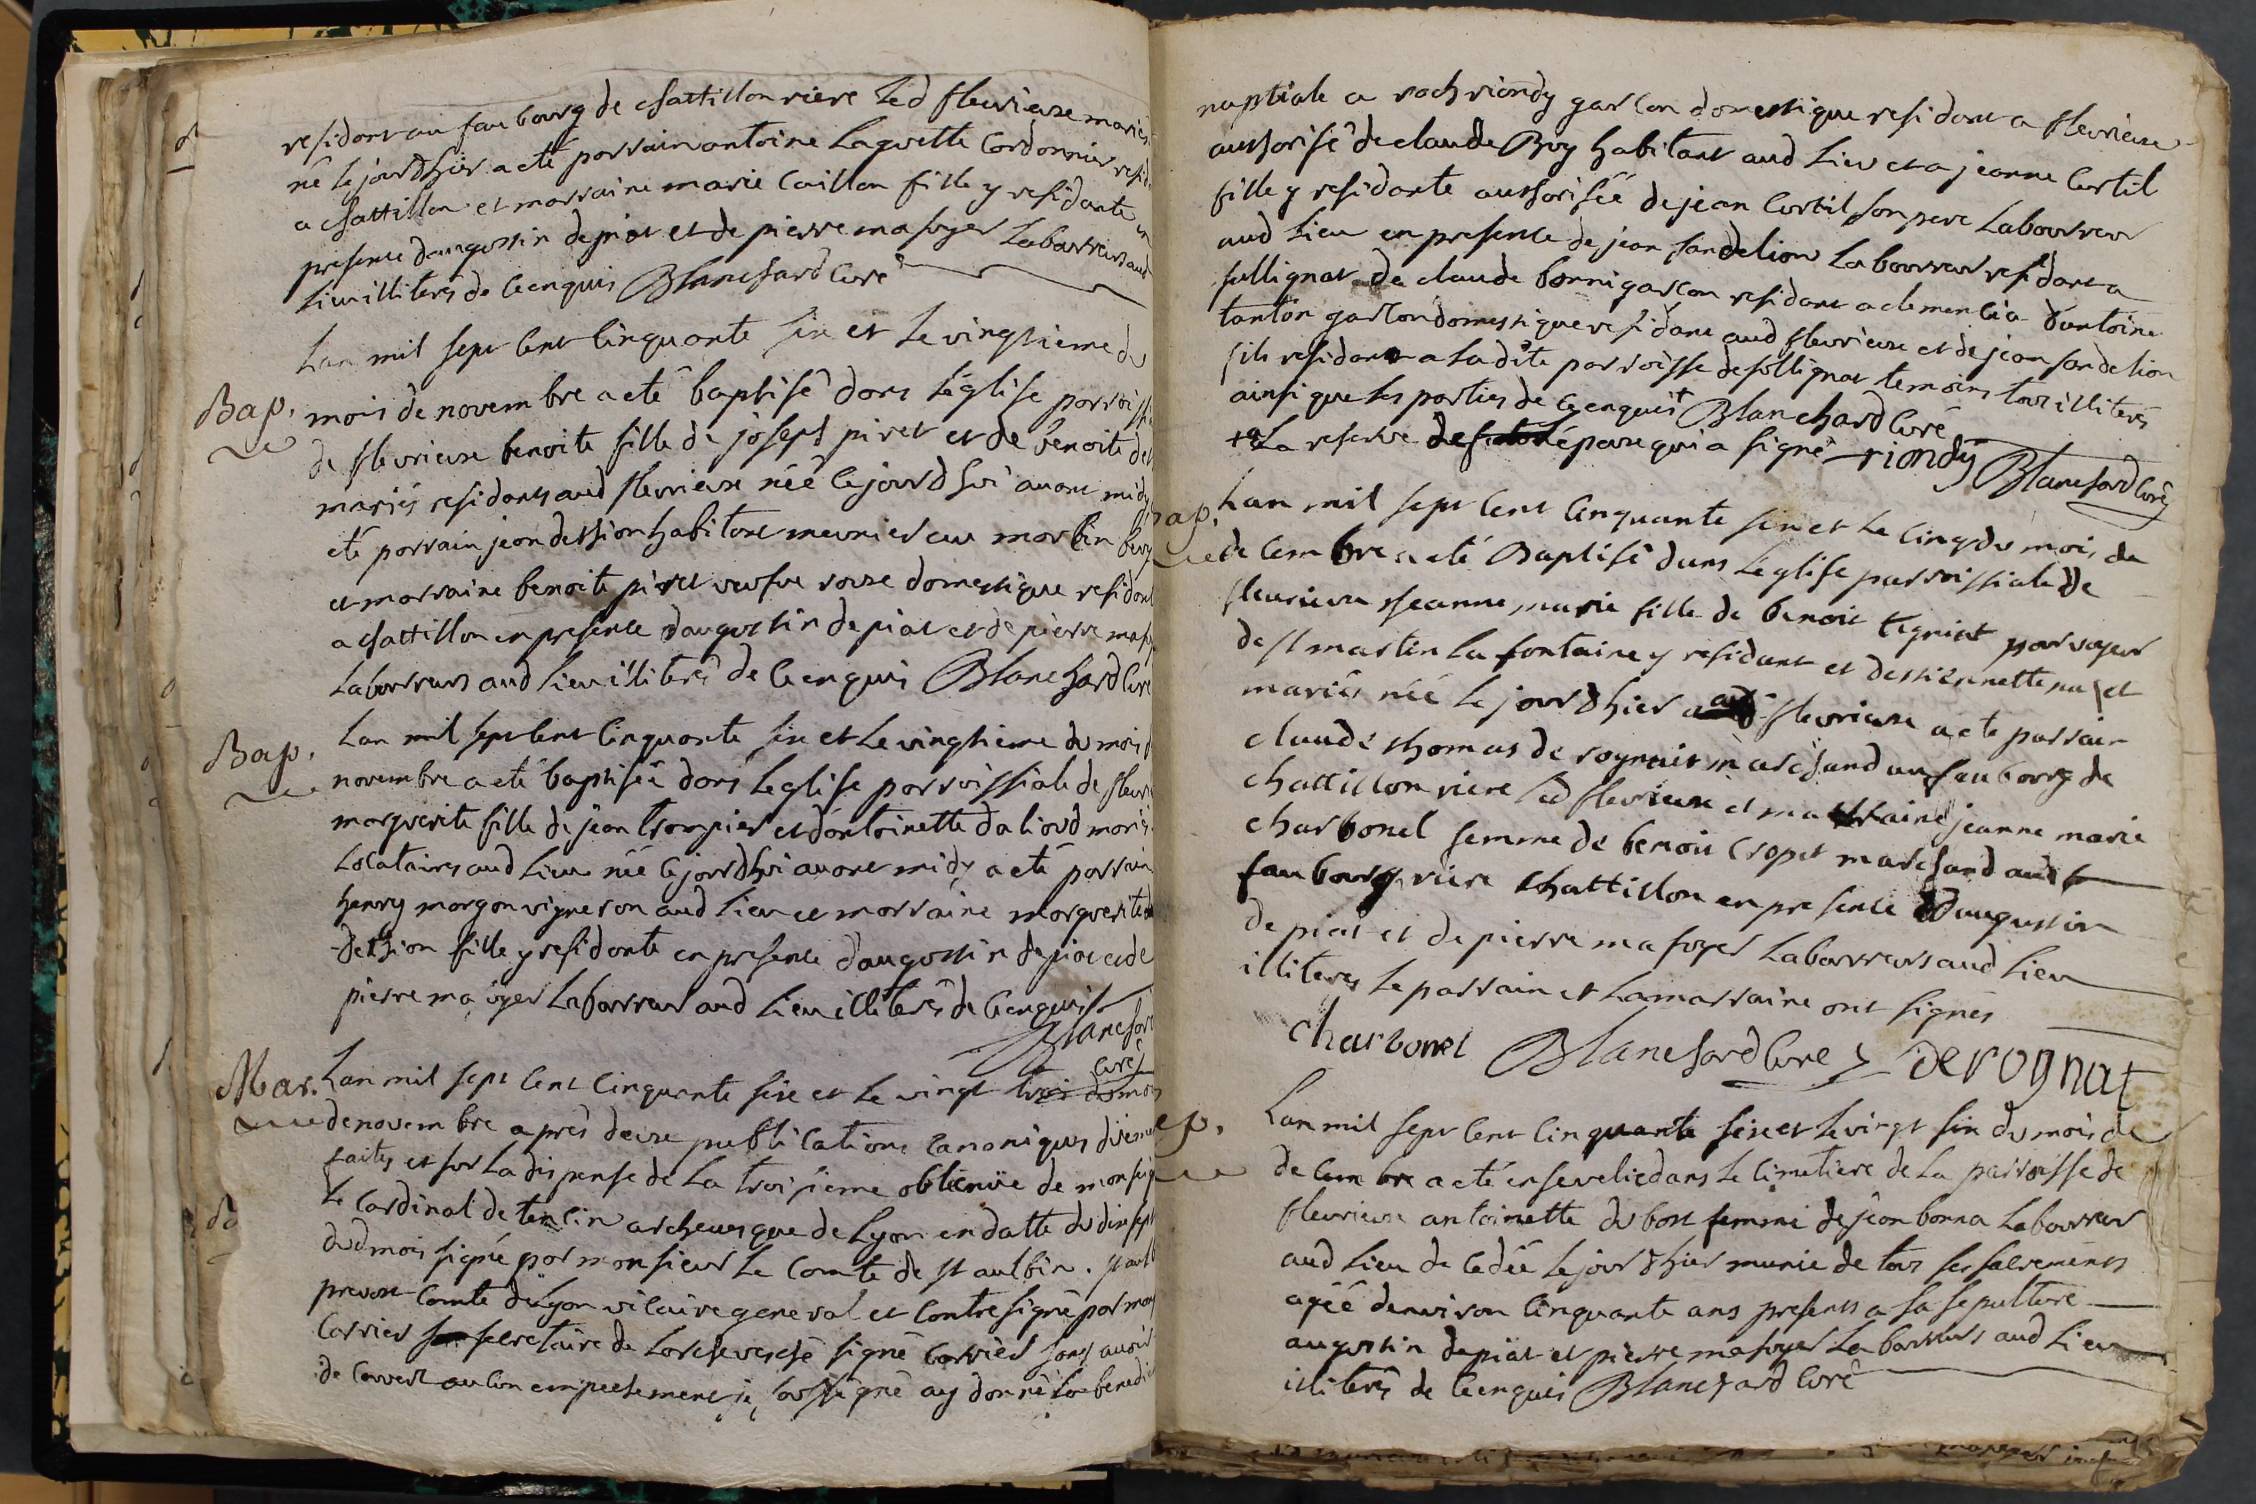 residant au faubourg de chattillon riere led fleurieux mariés
né le jourdhier a eté parrain antoine Laguette Cordonnier resid
a chattillon et marraine marie Caillon fille y residante en
presence daugustin depiat et de pierre mafoyer Laboureurs aud
Lieu illiterés de ce enquis Blanchard Curé
Lan mil sept Cent Cinquante six et Le vingtieme du
Bap. mois de novembre a eté baptisé dans Léglise parroissi
de fleurieux benoite fille de joseph piret et de benoite de
mariés residants aud fleurieux néé Cejourdhui avant midy
eté parrain jean dethion habitant meunier au
et marraine benoite piret veufve domestique residant
a chattillon en presence daugustin depiat et de pierre mafoy
Laboureurs aud Lieu illiterés de Ce enquis Blanchard Curé
Bap. Lan mil sept Cent Cinquante six et Le vingtieme du mois d
novembre a eté baptiséé dans Leglise parroissiale de fleuri
marguerite fille de jean trompier et dantoinette dalioud mariés
Locataires aud Lieu néé Cejourdhui avant midy a eté parrain
henry morgon vigneron aud Lieu et marraine marguerite
dethion fille y residante en presence daugustin depiat et de
pierre mafoyer Laboureur aud Lieu illiterés de Ce enquis
Blanchard
Curé
Mar. Lan mil sept Cent Cinquante six et Le vingt trois du mois
de novembre après deux publications Canoniques diuement
faites et sur La dispense de La troisieme obtenüe de monseig
Le Cardinal de tencin archeuesque de Lyon en datte du dix sept
dud mois signée par monsieur Le Comte de st aulbin. st aulb
prevost Comte de Lyon vicaire general et Contresigné par mons
Carrier secretaire de Larcheveché signé Carrier sans avoir
decouvert aucun empechement je soussigné ay donné La benedic
nuptiale a roch riondy garcon domestique residant a fleurieux
authorisé de claude Buy habitant aud Lieu et a jeanne Curtil
fille y residante authoriséé de jean Curtil son pere Laboureur
aud Lieu en presence de jean fandelion Laboureur residant a
sullignat de claude bonni garcon residant a clemencia dantoine
tanton garcon domestique residant aud fleurieux et de jean fandelion
fils residant a ladite parroisse de sullignat temoins tous illiterés
ainsi que les parties de Ce enquis + Blanchard Curé
+ a La reserve de epoux qui a signé riondy Blanchard Curé
Bap. Lan mil sept Cent Cinquante six et Le Cinq du mois de
decembre a eté Baptisé dans Leglise parroissiale de
fleurieux jeanne marie fille de benoit
de st martin La fontaine y residant et destiennette
mariés néé Le jourdhier a aud fleurieux a eté parrain
claude thomas de rognat marchand au faubourg de
chattillon riere led fleurieux et marraine jeanne marie
charbonel femme de benoit Cropet marchand aud
faubourg riere chattillon en presence daugustin
depiat et de pierre mafoyer Laboureurs aud Lieu
illiterés Le parrain et La marraine ont signés
charbonel Blanchard Curé de rognat
ep. Lan mil sept Cent Cinquante six et Le vingt six du mois de
decembre a eté enseveliedans Le Cimetiere de La parroisse de
fleurieux antoinette dubost femme de jean bonna Laboureur
aud Lieu decedéé Le jourdhier munie de tous ses sacrements
agéé denviron Cinquante ans presents a sa sepulture
augustin depiat et pierre mafoyer Laboureurs aud Lieu
illiterés de Ce enquis Blanchard Curé